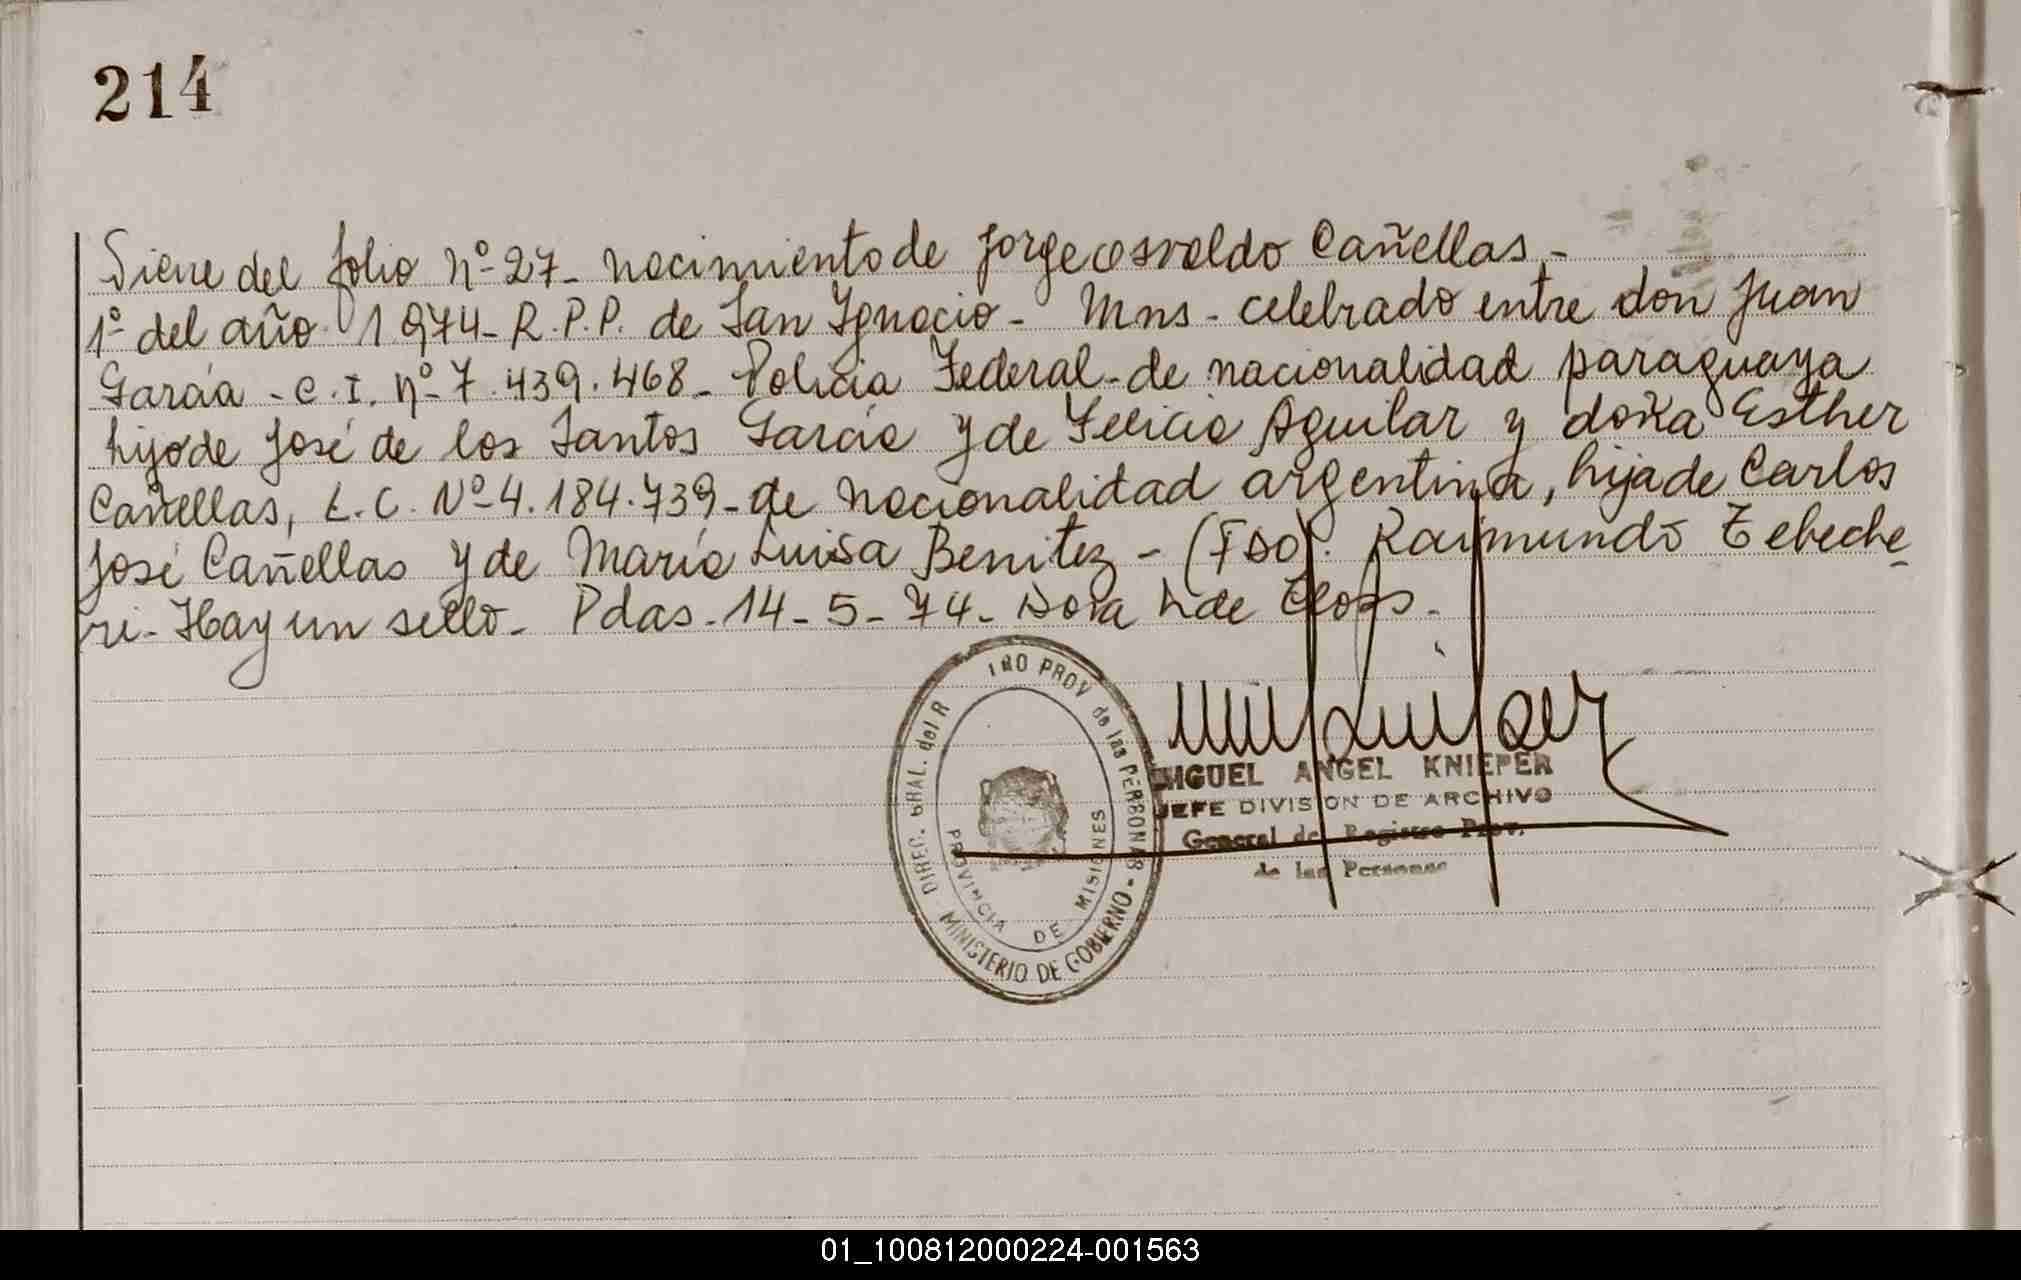 214
Viene del folio Nº 27- nacimiento de Jorge Osvaldo Cañellas -
1º del año 1974- R.P.P. de San Ignacio - Mns - celebrado entre don Juan
García - C.I. Nº 7.439.468- Policía Federal - de nacionalidad paraguaya
hijo de José de los Santos García y de Felicia Aguilar y doña Esther
Cañellas, L.C. Nº 4.184.739- de nacionalidad argentina, hija de Carlos
José Cañellas y de María Luisa Benitez - (FDO). Raimundo Tebeche
ri - Hay un sello - Pdas - 14 - 5 - 74 - Dora de
DIREC. GRAL. del R INO PROV de las PERSONAS - MINISTERIO DE GOBIERNO
PROVINCIA DE MISIONES
MIGUEL ANGEL KNIEPER
JEFE DIVISION DE ARCHIVO
General de Registro Prov.
de las Personas
01_100812000224-001563